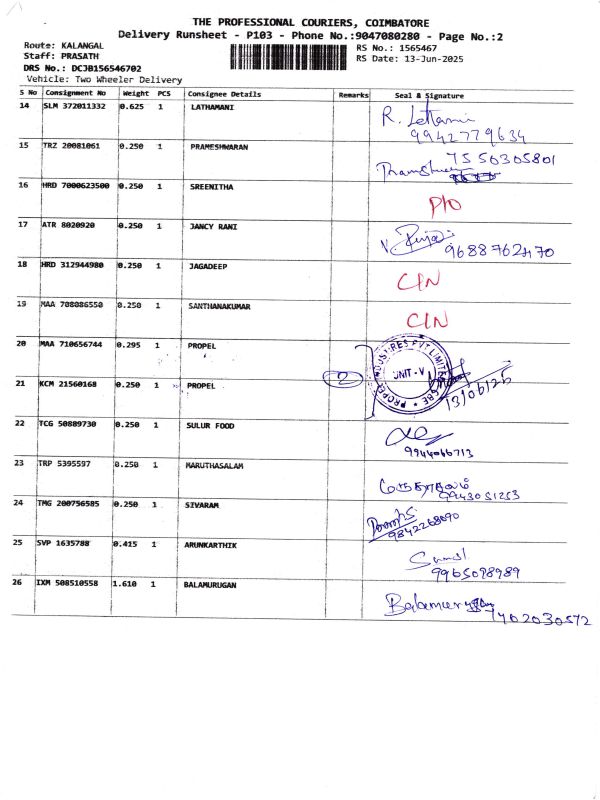 THE PROFESSIONAL COURIERS, COIMBATORE
Delivery Runsheet - P103 - Phone No.:9047080280 - Page No.:2
Route: KALANGAL
RS No.: 1565467
Staff: PRASATH
RS Date: 13-Jun-2025
DRS No.: DCJB156546702
Vehicle: Two Wheeler Delivery
S No Consignment No Weight PCS Consignee Details Remarks Seal & Signature
14 SLM 372011332 0.625 1 LATHAMANI R. Lathamani
9942779634
15 TRZ 20081061 0.250 1 PRAMESHWARAN 7550305801
16 HRD 7000623500 0.250 1 SREENITHA
P/O
17 ATR 8020920 0.250 1 JANCY RANI
9688762470
18 HRD 312944980 0.250 1 JAGADEEP
C/N
19 MAA 708086550 0.250 1 SANTHANAKUMAR
C/N
20 MAA 710656744 0.295 1 PROPEL
UNIT-V
21 KCM 21560168 0.250 1 PROPEL 2
13/06/25
22 TCG 50889730 0.250 1 SULUR FOOD
9944066713
23 TRP 5395597 0.250 1 MARUTHASALAM
மருதாசலம்
9943051253
24 TMG 200756585 0.250 1 SIVARAM
9842268090
25 SVP 1635788 0.415 1 ARUNKARTHIK
9965098989
26 IXM 508510558 1.610 1 BALAMURUGAN
7402030572